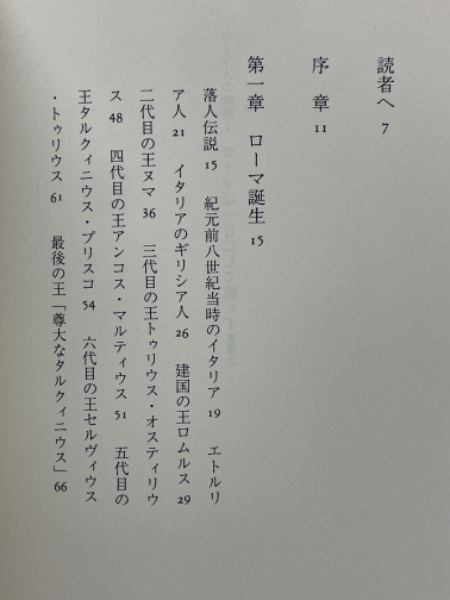 読者へ 7
序 章 11
第一章 ローマ誕生 15
落人伝説 15 紀元前八世紀当時のイタリア 19 エトルリ
ア人 21 イタリアのギリシア人 26 建国の王ロムルス 29
二代目の王ヌマ 36 三代目の王トゥリウス・オスティリウ
ス 48 四代目の王アンコス・マルティウス 51 五代目の
王タルクィニウス・プリスコ 54 六代目の王セルヴィウス
・トゥリウス 61 最後の王「尊大なタルクィニウス」 66